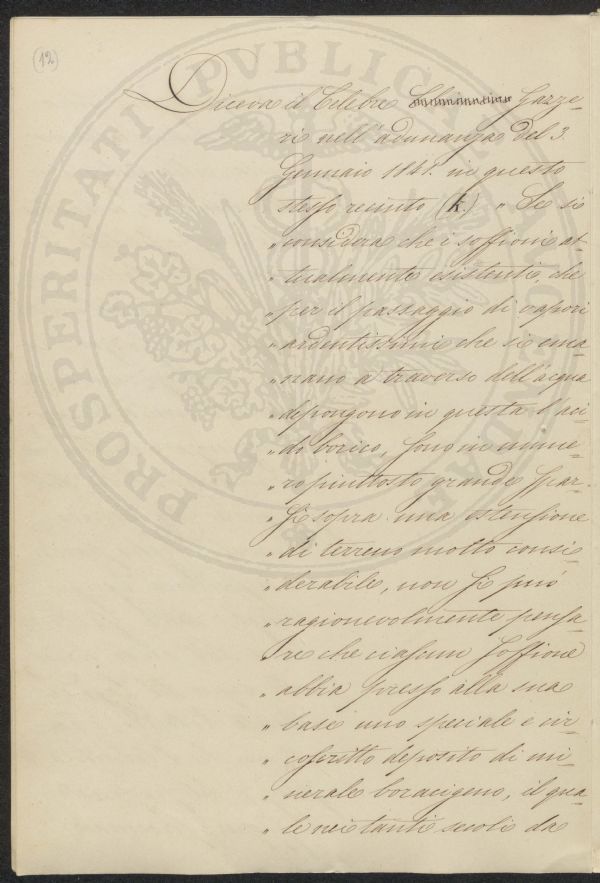 (12)
Diceva il Celebre Gazze-
ri nell'adunanza del 3.
Gennaio 1841. in questo
stesso recinto (k.) „ Se si
„ considera che i soffioni at-
„ tualmente esistenti, che
„ per il passaggio di vapori
„ ardentissimi che si ema-
„ nano a traverso dell'acqua
„ depongono in questa l'aci-
„ do borico, sono in nume-
„ ro piuttosto grande spar-
„ si sopra una estensione
„ di terreno molto consi-
„ derabile, non si può
„ ragionevolmente pensa-
„ re che ciascun soffione
„ abbia presso alla sua
„ base uno speciale e cir-
„ coscritto deposito di mi-
„ nerale boracigeno, il qua-
„ le nei tanti secoli da
PROSPERITATI PVBLICAE AVGENDAE